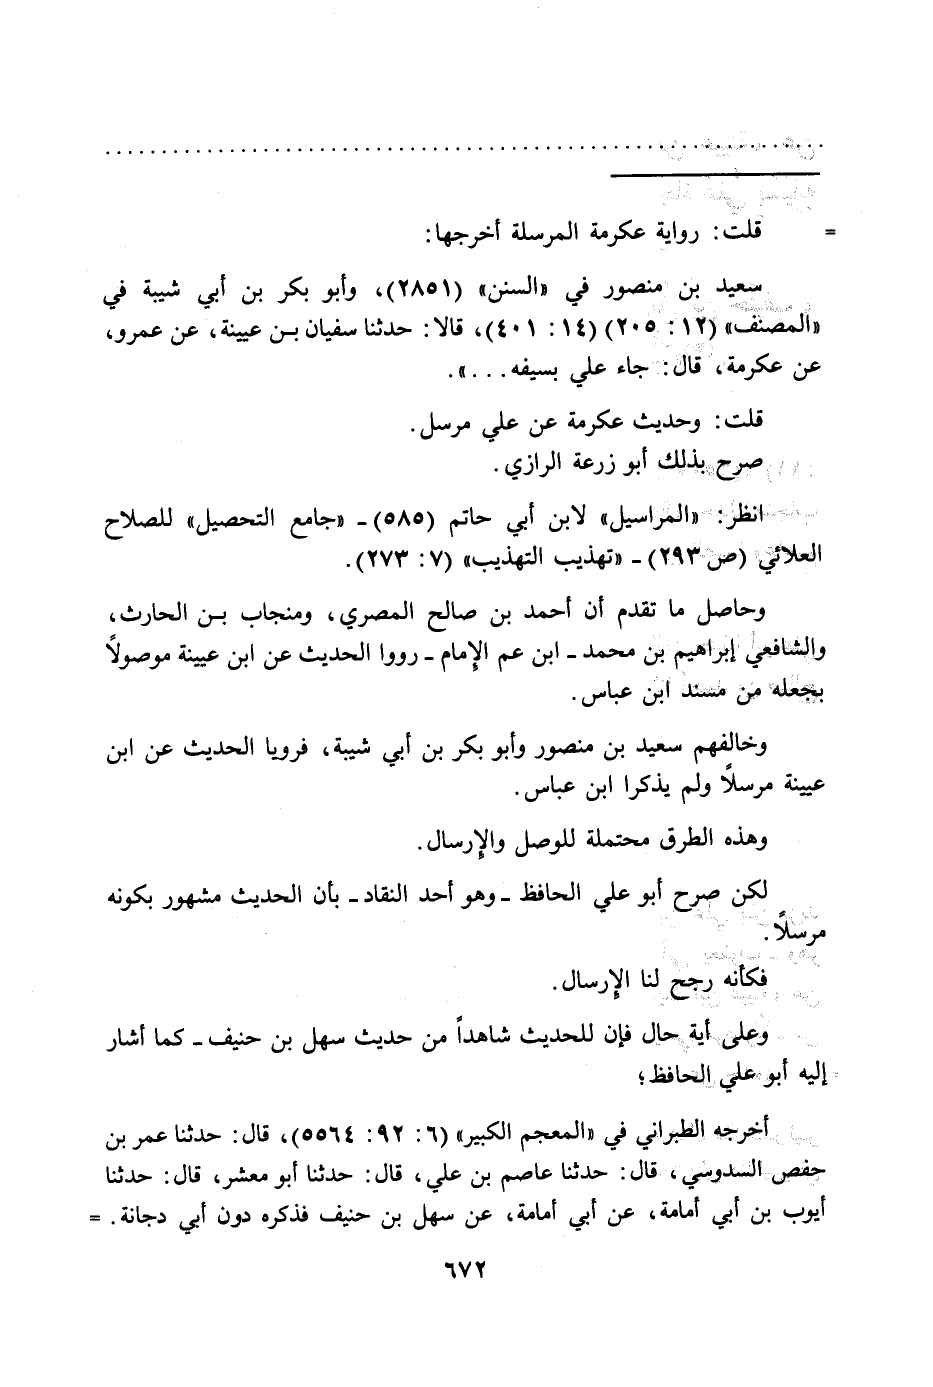 = قلت: رواية عكرمة المرسلة أخرجها:
سعيد بن منصور في «السنن» (٢٨٥١)، وأبو بكر بن أبي شيبة في
«المصنف» (١٢: ٢٠٥) (١٤: ٤٠١)، قالا: حدثنا سفيان بن عيينة، عن عمرو،
عن عكرمة، قال: جاء علي بسيفه...».
قلت: وحديث عكرمة عن علي مرسل.
صرح بذلك أبو زرعة الرازي.
انظر: «المراسيل» لابن أبي حاتم (٥٨٥) ـ «جامع التحصيل» للصلاح
العلائي (ص ٢٩٣) ـ «تهذيب التهذيب» (٧: ٢٧٣).
وحاصل ما تقدم أن أحمد بن صالح المصري، ومنجاب بن الحارث،
والشافعي إبراهيم بن محمد ـ ابن عم الإمام ـ رووا الحديث عن ابن عيينة موصولاً
بجعله من مسند ابن عباس.
وخالفهم سعيد بن منصور وأبو بكر بن أبي شيبة، فرويا الحديث عن ابن
عيينة مرسلاً ولم يذكرا ابن عباس.
وهذه الطرق محتملة للوصل والإرسال.
لكن صرح أبو علي الحافظ ـ وهو أحد النقاد ـ بأن الحديث مشهور بكونه
مرسلاً.
فكأنه رجح لنا الإرسال.
وعلى أية حال فإن للحديث شاهداً من حديث سهل بن حنيف ـ كما أشار
إليه أبو علي الحافظ؛
أخرجه الطبراني في «المعجم الكبير» (٦: ٩٢: ٥٥٦٤)، قال: حدثنا عمر بن
حفص السدوسي، قال: حدثنا عاصم بن علي، قال: حدثنا أبو معشر، قال: حدثنا
أيوب بن أبي أمامة، عن أبي أمامة، عن سهل بن حنيف فذكره دون أبي دجانة. =
٦٧٢